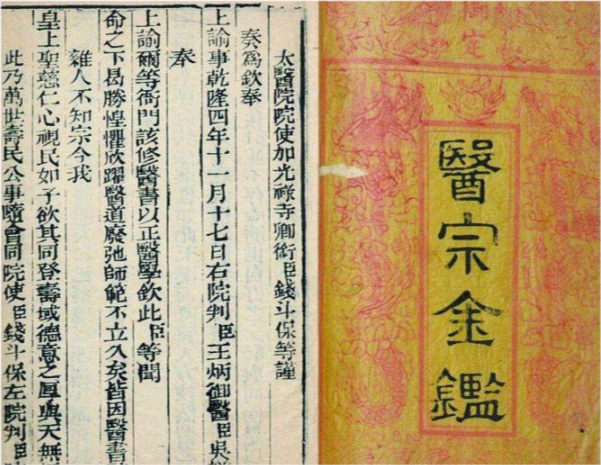 醫宗金鑑
太醫院院使加光祿寺卿銜臣錢斗保等謹
奏爲欽奉
上諭事乾隆四年十一月十七日右院判臣王炳御醫臣吳
奉
上諭爾等衙門該修醫書以正醫學欽此臣等聞
命之下曷勝惶懼欣躍醫道廢弛師範不立久矣皆因醫書
雜人不知宗今我
皇上聖慈仁心視民如子欲其同登壽域德意之厚與天無
此乃萬世壽民公事隨會同院使臣錢斗保左院判臣